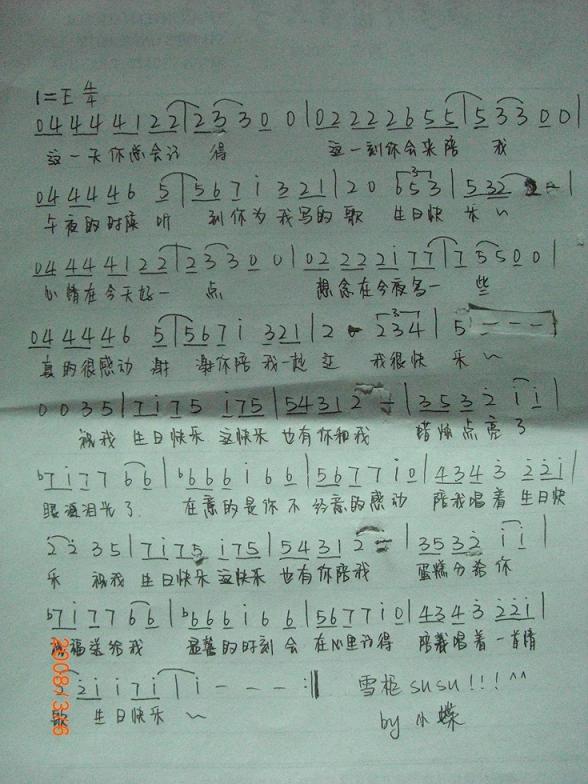 1=E 4/4
04 4 4 4 1 2 2 | 2 3 3 0 0 | 0 2 2 2 2 6 5 5 | 5 3 3 0 0 |
这一天你总会记 得 这一刻你会来陪 我
0 4 4 4 4 6 5 | 5 6 7 i 3 2 1 | 2 0 6 5 3 | 5 3 2 - |
午夜的时候 听 到你为我写的歌 生日快 乐~
0 4 4 4 4 1 2 2 | 2 3 3 0 0 | 0 2 2 2 2 i 7 7 | 7 5 5 0 0 |
心情在今天好一 点 想念在今夜多一 些
0 4 4 4 4 6 5 | 5 6 7 i 3 2 1 | 2 - 2 3 4 | 5 - - - |
真的很感动 谢 谢你陪我一起过 我很快 乐~
0 0 3 5 | 7 i 7 5 i 7 5 | 5 4 3 1 2 - | 3 5 3 2 i i |
祝我 生日快乐 这快乐 也有你和我 蜡烛点亮了
b7 i 7 7 6 6 | b6 6 6 i 6 6 | 5 6 7 7 i 0 | 4 3 4 3 2 2 i |
眼泪泪光了. 在意的是你不 经意的感动 陪我唱着 生日快
2 2 3 5 | 7 i 7 5 i 7 5 | 5 4 3 1 2 - | 3 5 3 2 i i |
乐 祝我 生日快乐 这快乐 也有你陪我 蛋糕分给你
b7 i 7 7 6 6 | b6 6 6 i 6 6 | 5 6 7 7 i 0 | 4 3 4 3 2 2 i |
祝福送给我 温馨的时刻会 在心里记得 陪我唱着 一首情
2 2 i i 7 i | i - - - :‖ 雪柜 susu!!! ^^
歌 生日快乐 ~ by 小蝶
2008/3/6